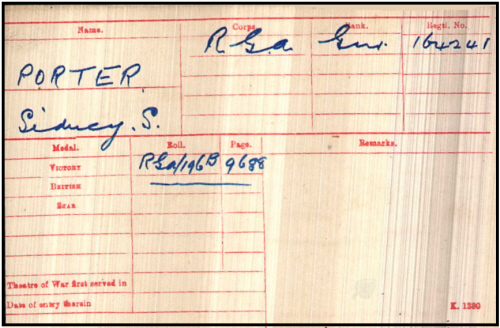 Name. Corps. Rank. Regtl. No.
R.G.A. Gnr. 164241
PORTER
Sidney. S.
Medal. Roll. Page. Remarks.
VICTORY RGA/196B 9688
BRITISH
STAR
Theatre of War first served in
Date of entry therein
K. 1380